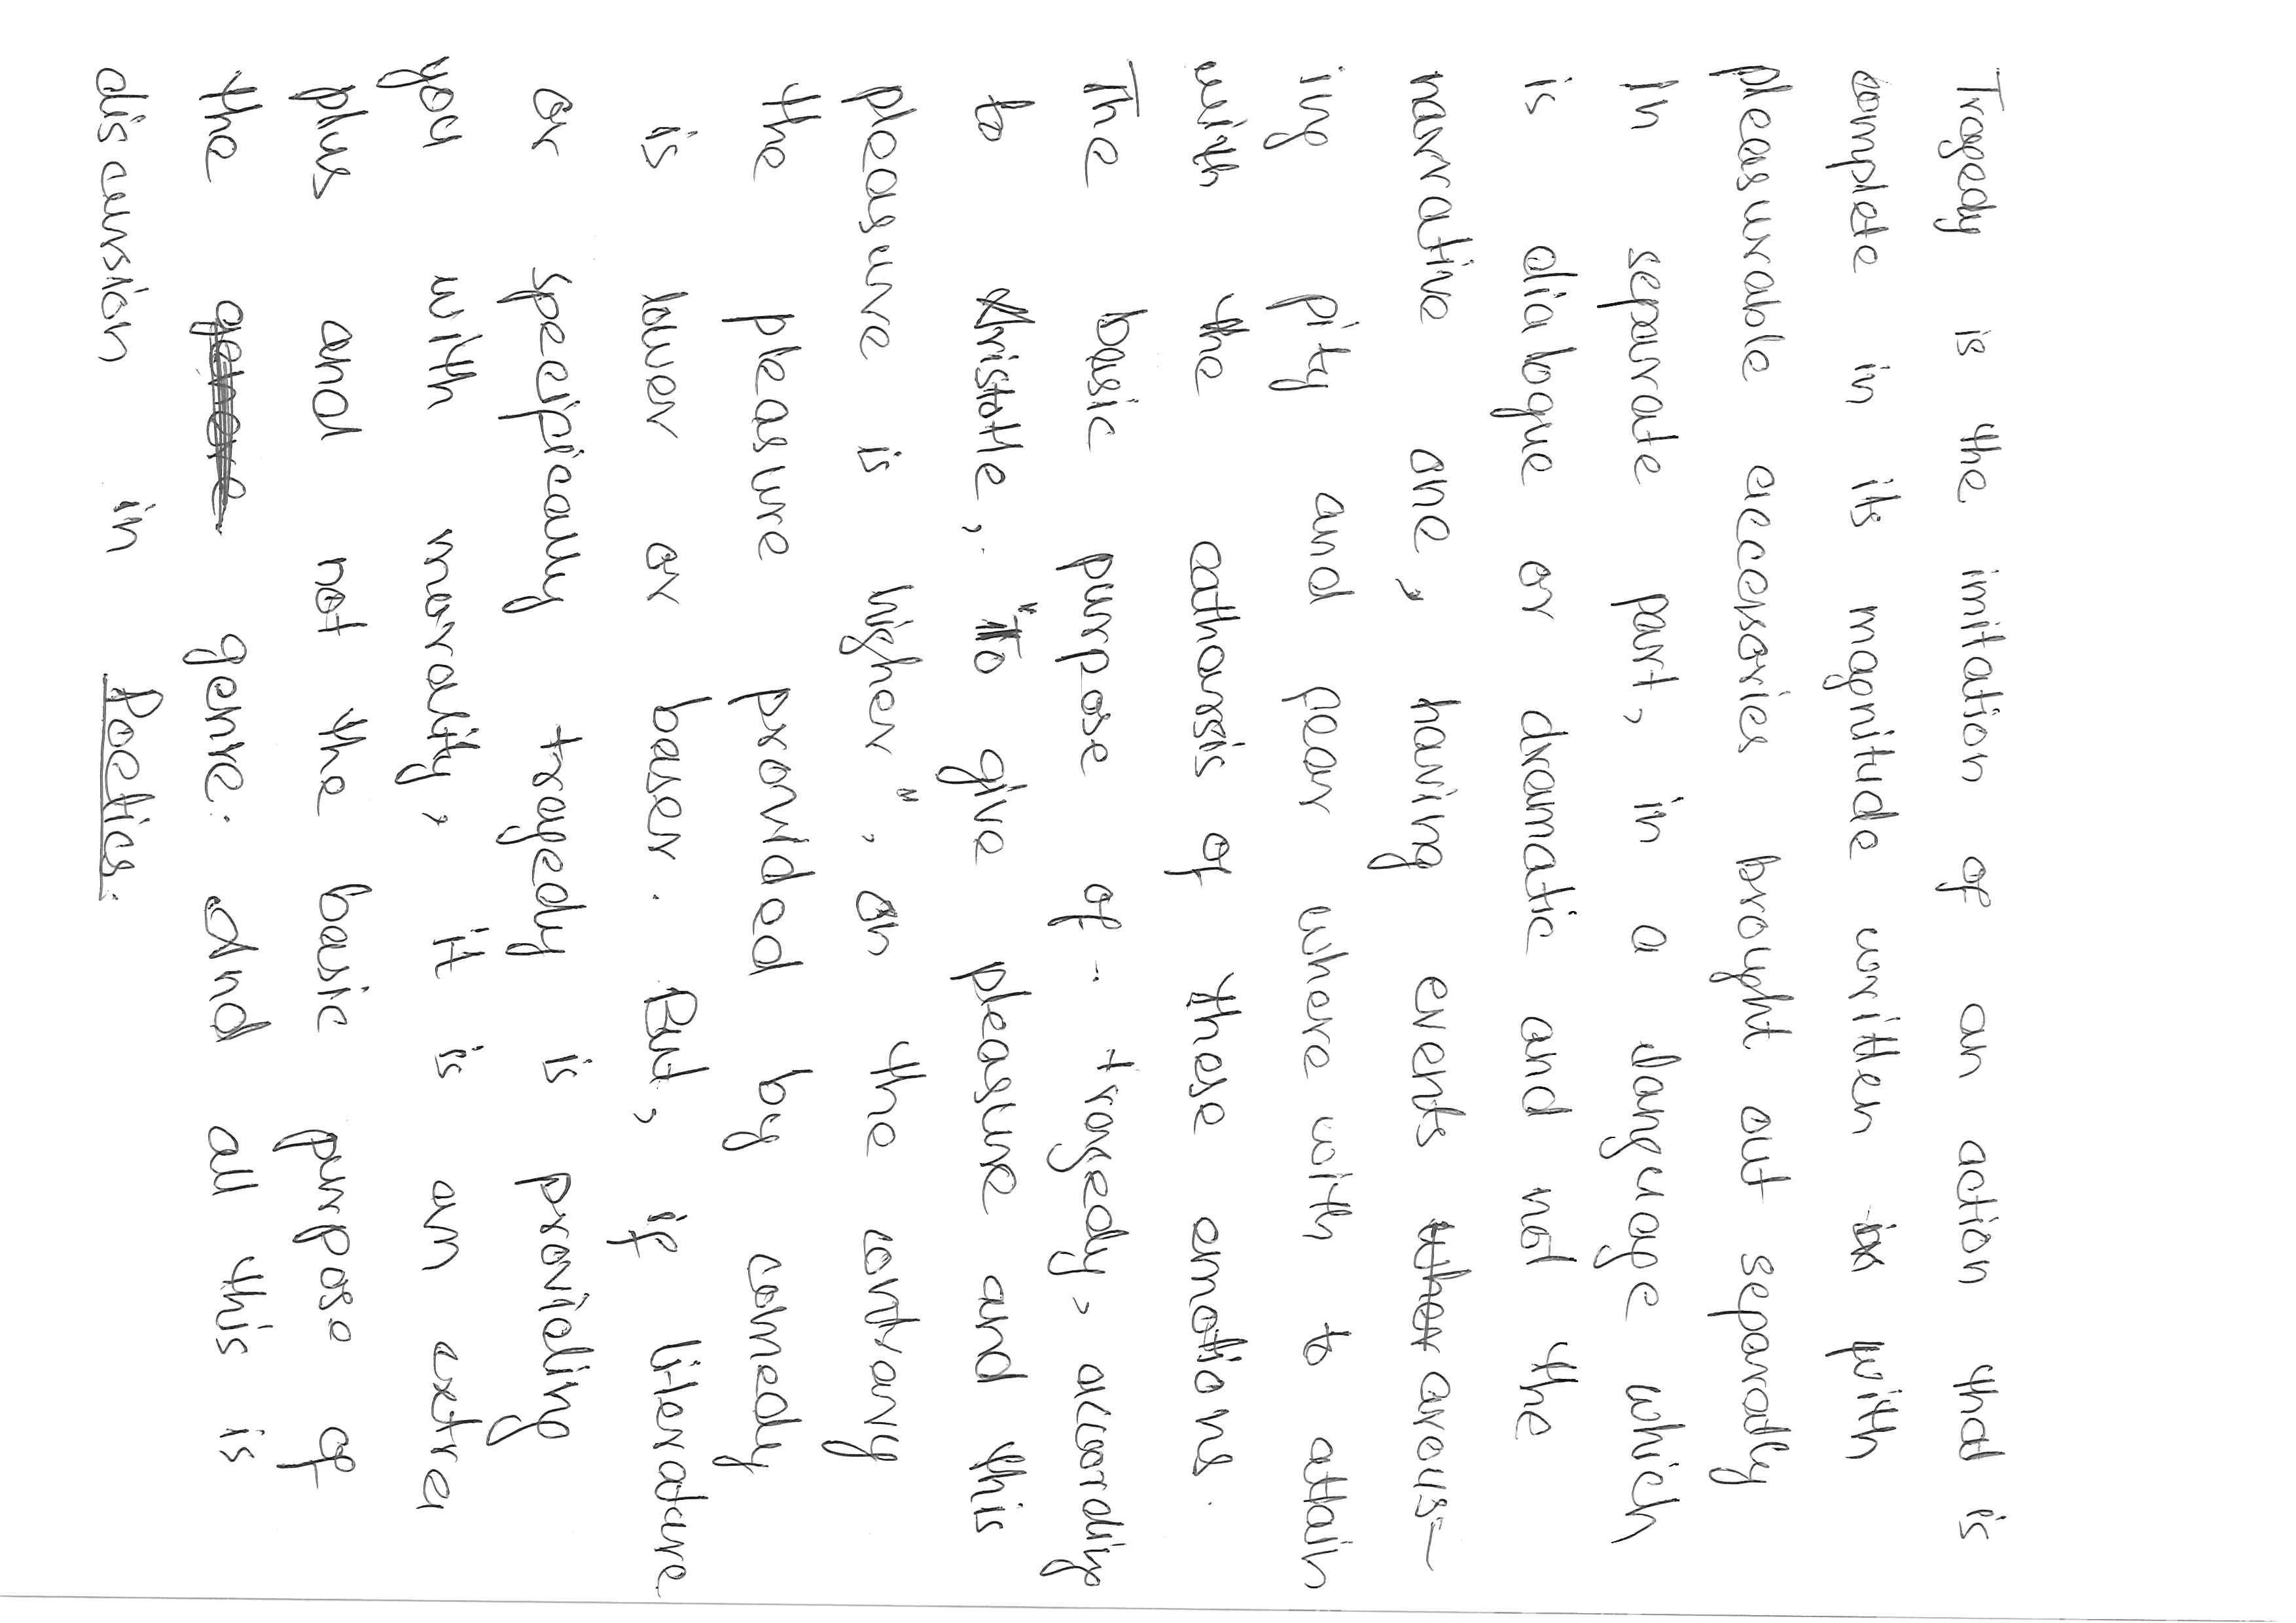 Tragedy is the imitation of an action that is
complete in its magnitude written in with
pleasurable accessories brought out separatly
In separate part, in a language which
is dialogue or dramatic and not the
narrative one, having events wher arous-
ing pity and fear where with to attain
with the catharsis of these emotions.
The basic purpose of tragedy, according
to Aristotle, "To give pleasure and this
pleasure is higher", on the contrary
the pleasure provided by comedy
is lower or baser. But, if literature
or specifically tragedy is providing
you with morality, it is an extra
plus and not the basic purpose of
the genere genre. And all this is
discussion in Poetics.